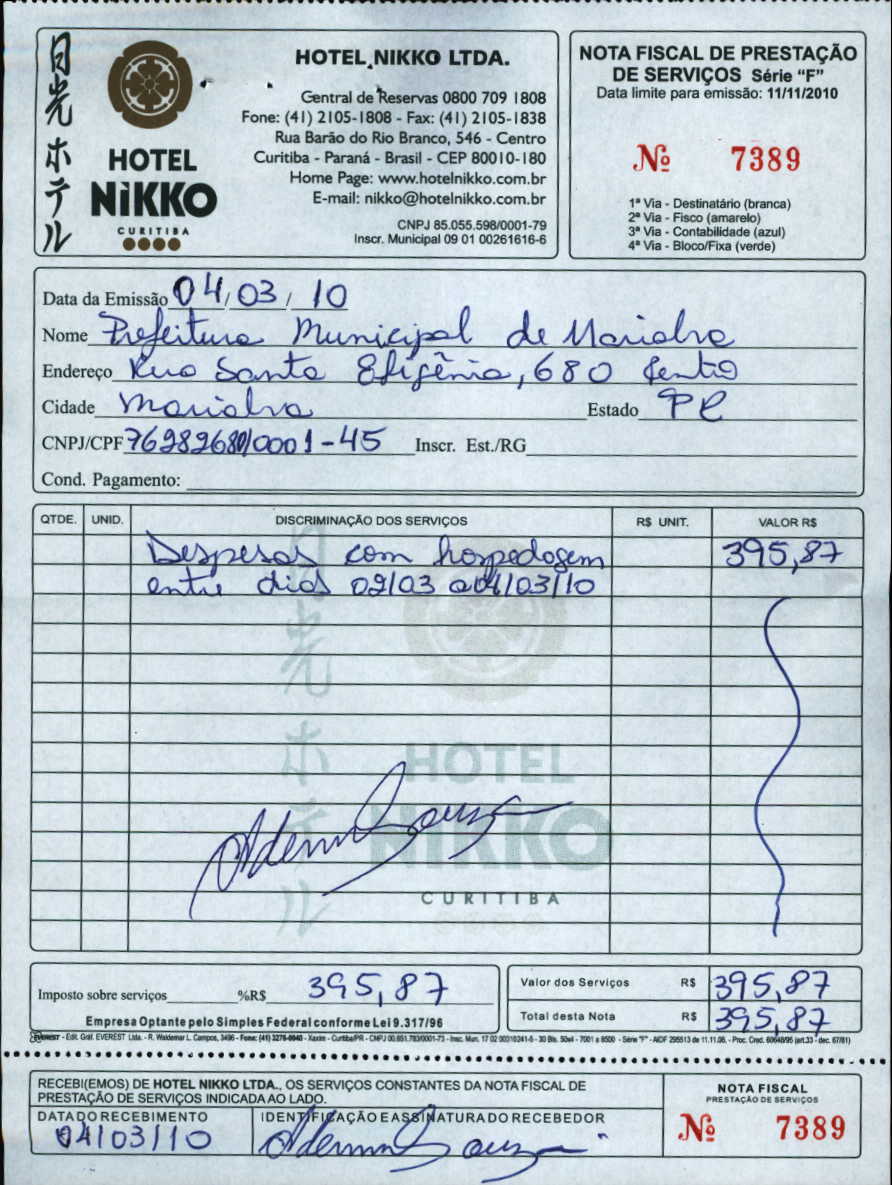 日光ホテル
HOTEL
NiKKO
CURITIBA
HOTEL NIKKO LTDA.
Central de Reservas 0800 709 1808
Fone: (41) 2105-1808 - Fax: (41) 2105-1838
Rua Barão do Rio Branco, 546 - Centro
Curitiba - Paraná - Brasil - CEP 80010-180
Home Page: www.hotelnikko.com.br
E-mail: nikko@hotelnikko.com.br
CNPJ 85.055.598/0001-79
Inscr. Municipal 09 01 00261616-6
NOTA FISCAL DE PRESTAÇÃO
DE SERVIÇOS Série "F"
Data limite para emissão: 11/11/2010
Nº 7389
1ª Via - Destinatário (branca)
2ª Via - Fisco (amarelo)
3ª Via - Contabilidade (azul)
4ª Via - Bloco/Fixa (verde)
Data da Emissão 04/03/10
Nome Prefeitura Municipal de Marialva
Endereço Rua Santa Efigênia, 680 Centro
Cidade Marialva Estado PR
CNPJ/CPF 76282680/0001-45 Inscr. Est./RG
Cond. Pagamento:
QTDE. UNID. DISCRIMINAÇÃO DOS SERVIÇOS R$ UNIT. VALOR R$
Despesas com hospedagem 395,87
entre dias 02/03 a 04/03/10
日光ホテル
HOTEL
NIKKO
CURITIBA
Imposto sobre serviços %R$ 395,87
Empresa Optante pelo Simples Federal conforme Lei 9.317/96
Valor dos Serviços R$ 395,87
Total desta Nota R$ 395,87
EVEREST - Edit. Gráf. EVEREST Ltda. - R. Waldemar L. Campos, 3496 - Fone: (41) - Xaxim - Curitiba/PR - 30 Bls. 50x4 - 7001 a 8500 - Série "F" - AIDF 295513 de 11.11.08. - Proc. Cred. 60648/95 (art.33 - dec. 67/81)
RECEBI(EMOS) DE HOTEL NIKKO LTDA., OS SERVIÇOS CONSTANTES DA NOTA FISCAL DE
PRESTAÇÃO DE SERVIÇOS INDICADA AO LADO.
DATA DO RECEBIMENTO IDENTIFICAÇÃO E ASSINATURA DO RECEBEDOR
04/03/10
NOTA FISCAL
PRESTAÇÃO DE SERVIÇOS
Nº 7389